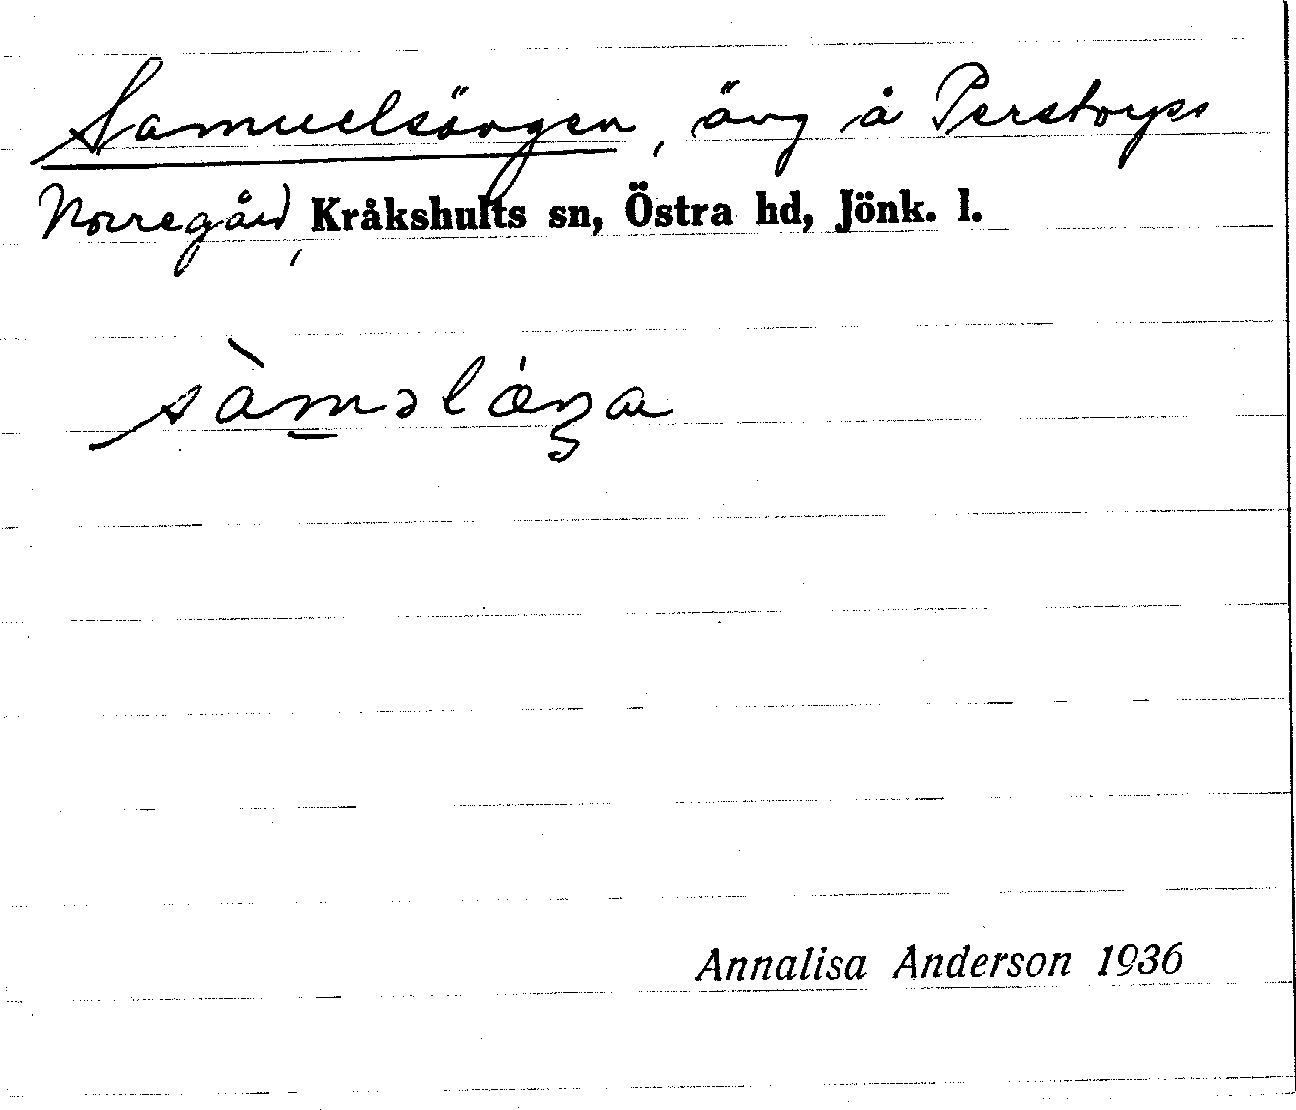 Samuelsängen, äng å Perstorps
Norregård, Kråkshults sn, Östra hd, Jönk. l.
Annalisa Anderson 1936